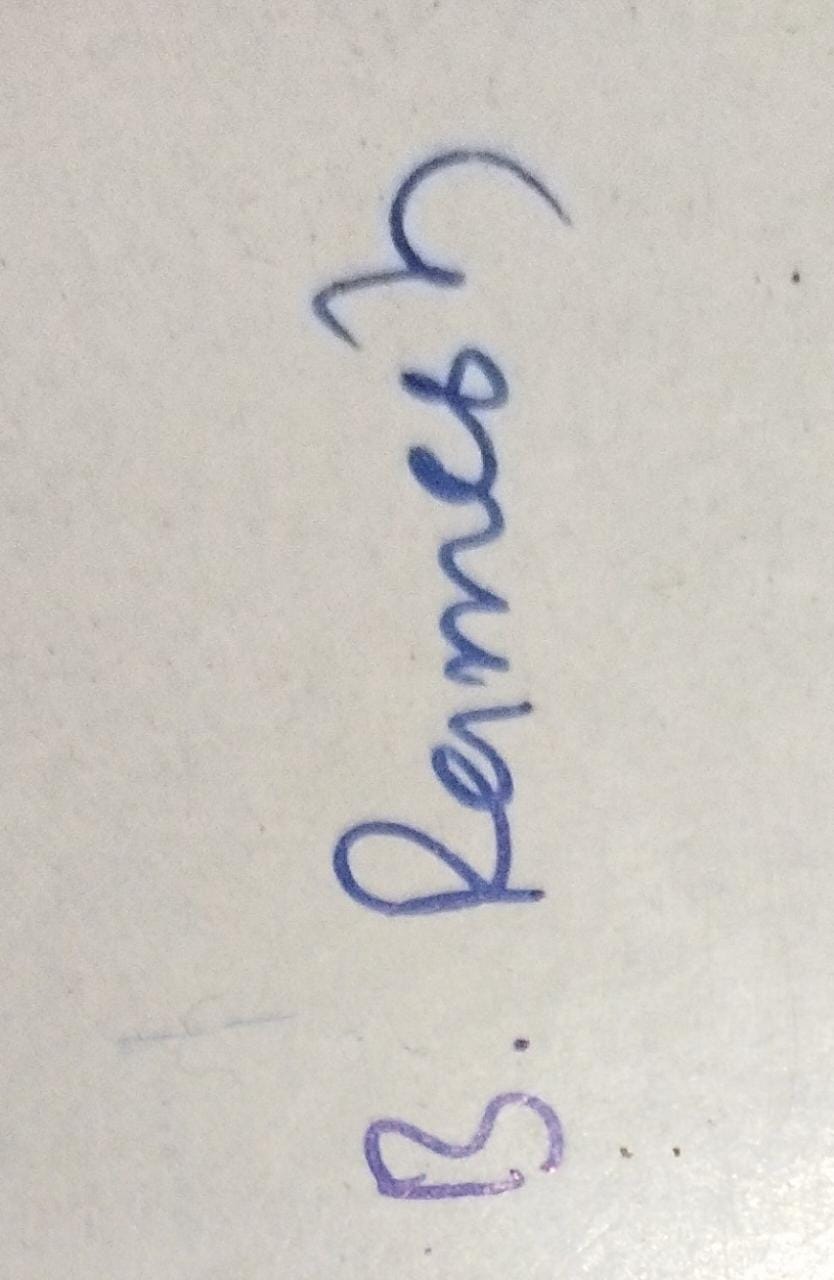 B. Ramesh